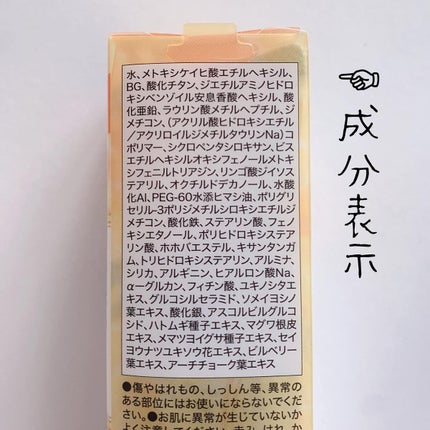 水、メトキシケイヒ酸エチルヘキシル、
BG、酸化チタン、ジエチルアミノヒドロ
キシベンゾイル安息香酸ヘキシル、酸
化亜鉛、ラウリン酸メチルヘプチル、ジ
メチコン、(アクリル酸ヒドロキシエチル
/アクリロイルジメチルタウリンNa)コ
ポリマー、シクロペンタシロキサン、ビス
エチルヘキシルオキシフェノールメトキ
シフェニルトリアジン、リンゴ酸ジイソス
テアリル、オクチルドデカノール、水酸
化Al、PEG-60水添ヒマシ油、ポリグリ
セリル-3ポリジメチルシロキシエチルジ
メチコン、酸化鉄、ステアリン酸、フェノ
キシエタノール、ポリヒドロキシステア
リン酸、ホホバエステル、キサンタンガ
ム、トリヒドロキシステアリン、アルミナ、
シリカ、アルギニン、ヒアルロン酸Na、
α-グルカン、フィチン酸、ユキノシタエ
キス、グルコシルセラミド、ソメイヨシノ
葉エキス、酸化銀、アスコルビルグルコ
シド、ハトムギ種子エキス、マグワ根皮
エキス、メマツヨイグサ種子エキス、セイ
ヨウナツユキソウ花エキス、ビルベリー
葉エキス、アーチチョーク葉エキス
●傷やはれもの、しっしん等、異常の
ある部位にはお使いにならないでくだ
さい。●お肌に異常が生じていないか
よく注意してください。赤み、はれ、か
成分表示